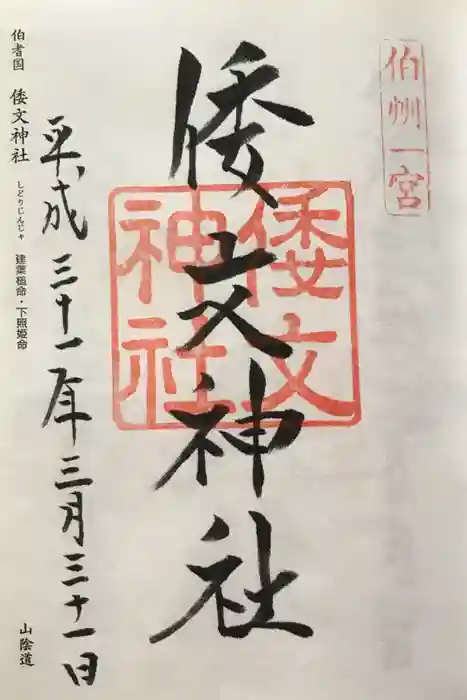 伯州一宮
倭文神社
倭文神社
平成三十一年三月三十一日
伯耆国 倭文神社 しどりじんじゃ 建葉槌命・下照姫命
山陰道